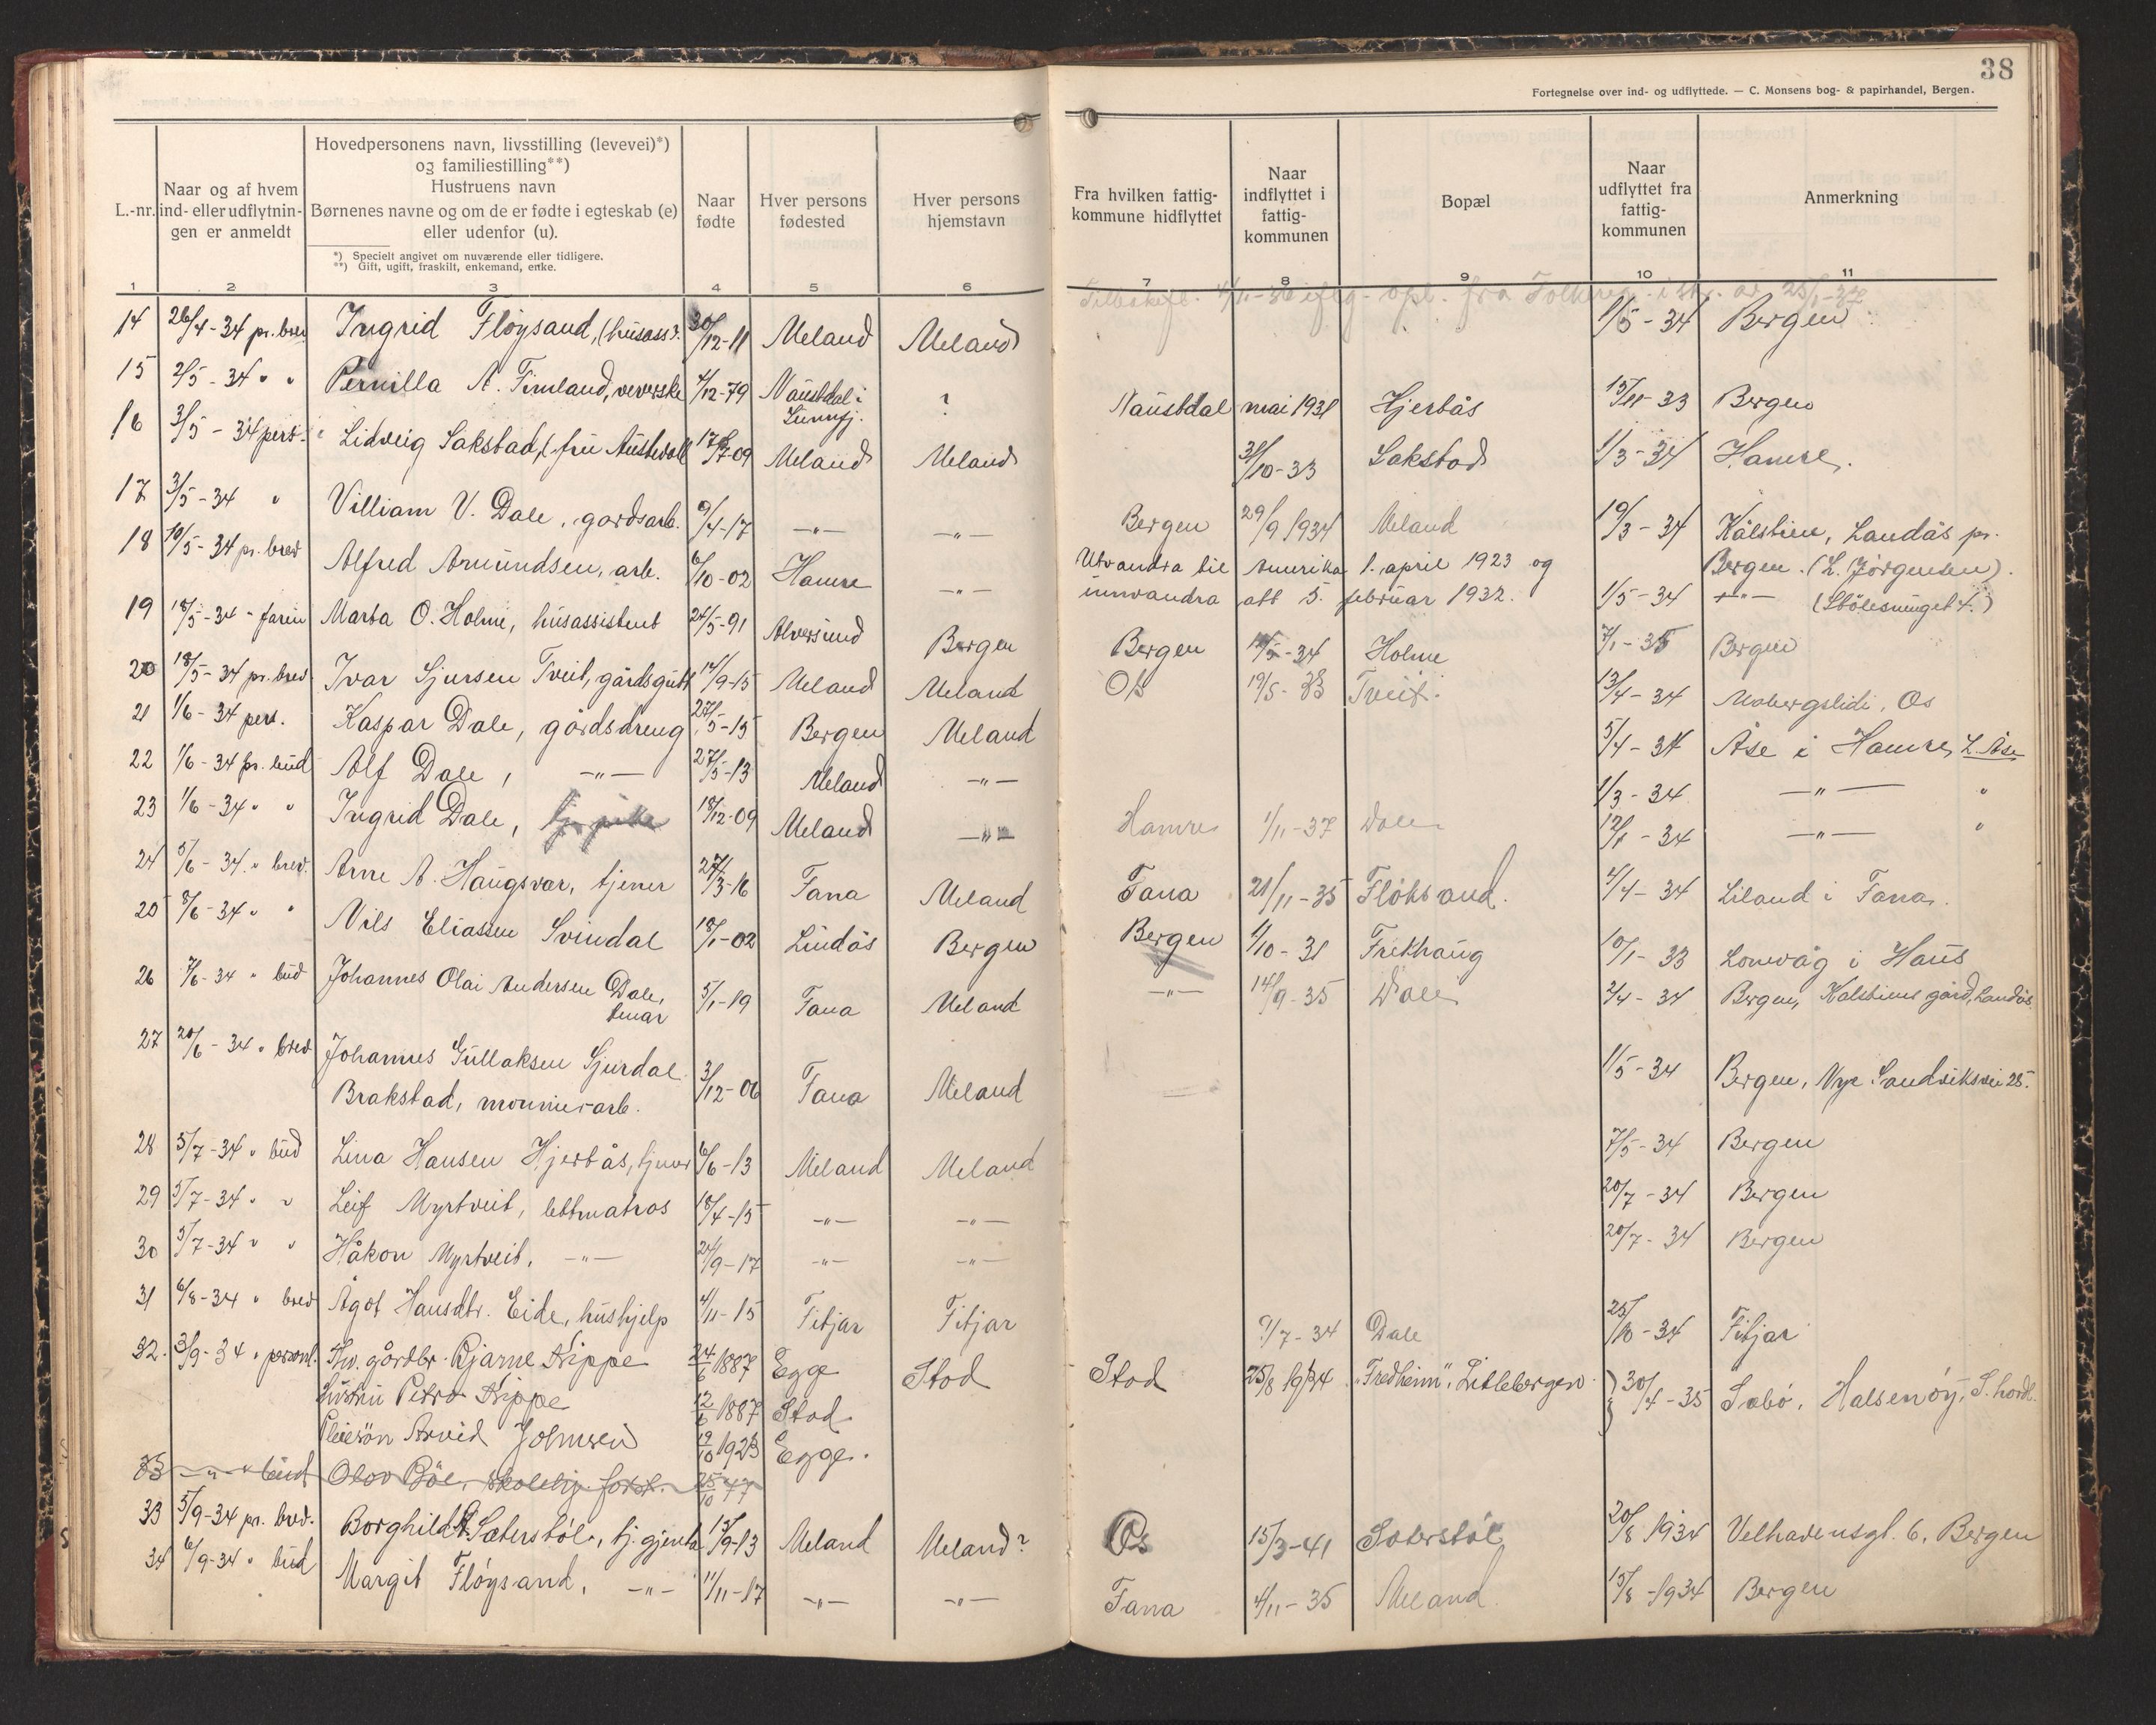 38
Fortegnelse over ind- og udflyttede. — C. Monsens bog- & papirhandel, Bergen.
L.-nr.
Naar og af hvem ind- eller udflytningen er anmeldt
Hovedpersonens navn, livsstilling (levevei)*)
og familiestilling**)
Hustruens navn
Børnenes navne og om de er fødte i egteskab (e)
eller udenfor (u).
*) Specielt angivet om nuværende eller tidligere.
**) Gift, ugift, fraskilt, enkemand, enke.
Naar fødte
Hver persons fødested
Hver persons hjemstavn
Fra hvilken fattig-kommune hidflyttet
Naar indflyttet i fattig-kommunen
Bopæl
Naar udflyttet fra fattig-kommunen
Anmerkning
1 2 3 4 5 6 7 8 9 10 11
14 26/4-34 pr. brev Ingrid Fløysand, (husass. 30/12-11 Meland Meland 1/5-34 Bergen
15 2/5-34 " " Pernilla A. Fimland, veverske 4/12-79 Naustdal i Sunnfj. ? Naustdal mai 1931 Hjertås 15/11-33 Bergen
16 3/5-34 pers. Lidveig Sakstad, f. fru Austevoll 17/7-09 Meland Meland 31/10-33 Sakstad 1/3-34 Hamre.
17 3/5-34 " Villiam V. Dale, gardsarb. 9/4-17 —"— —"— Bergen 29/9 1934 Meland 19/3-34 Kålstien, Landås pr.
Bergen. (L. Jørgensen).
18 10/5-34 pr. brev Alfred Amundsen, arb. 6/10-02 Hamre —"— Utvandra til Amerika 1. april 1923 og
innvandra att 5. februar 1932. 1/5-34 —"— (Stölesmuget 4.)
19 18/5-34 " faren Marta O. Holme, husassistent 24/5-91 Alversund Bergen Bergen -34 Holme 7/1-35 Bergen
20 18/5-34 pr. brev Ivar Sjursen Tveit, gårdsgutt 14/9-15 Meland Meland Os 19/5-38 Tveit. 13/4-34 Mobergslidi, Os
21 1/6-34 pers. Kaspar Dale, gårdsdreng 27/5-15 Bergen Meland 5/4-34 Åse i Hamre, L. Åse
22 1/6-34 pr. bud Alf Dale, —"— 27/5-13 Meland —"— 1/3-34 —"— "
23 1/6-34 " " Ingrid Dale, 18/12-09 Meland —"— Hamre 1/11-37 Dale 12/1-34 —"— "
24 5/6-34 " brev. Arne A. Haugsvær, tjener 27/3-16 Fana Meland Fana 21/11-35 Fløksand. 4/4-34 Liland i Fana.
25 8/6-34 " " Nils Eliassen Svindal 18/1-02 Lindås Bergen Bergen 1/10-31 Frekhaug 10/1-33 Lonevåg i Haus
26 7/6-34 " bud Johannes Olai Andersen Dale, tenar 5/1-19 Fana Meland —"— 14/9-35 Dale 2/4-34 Bergen, Kalstiens gård, Landås
27 20/6-34 " brev Johannes Gullaksen Gjerdal
Brakstad, mourierarb. 3/12-06 Fana Meland 1/5-34 Bergen, Nye Sandviksvei 25.
28 5/7-34 " bud Lina Hansen Hjertås, tjener 6/6-13 Meland Meland 7/5-34 Bergen
29 5/7-34 " " Leif Myrtveit, lettmatros 18/4-15 —"— —"— 20/7-34 Bergen
30 5/7-34 " " Håkon Myrtveit, —"— 24/9-17 —"— —"— 20/7-34 Bergen
31 6/8-34 " brev Ågot Hansdtr. Eide, hushjelp 4/11-15 Fitjar Fitjar ?/7-34 Dale 25/10-34 Fitjar
32. 3/9-34 " personl. Hv. gårdbr. Bjarne Kippe 24/6 1887 Egge Stod Stod 25/8 1934 "Fredheim", Litlebergen 30/4-35 Sæbø, Halsenøy, S. hordl.
Hustru Petra Kippe 12/6 1887 Stod
Pleiesøn Arvid Johnsen 19/10 1923 Egge.
33 —"— " bud Olav Bøe, 25/10 77
33 5/9-34 pr. brev. Borghild P. Sæterstøl, tj. gjenta 15/9-13 Meland Meland? Os 15/3-41 Sæterstøl 20/8 1934 Velhavensgt. 6, Bergen
34 6/9-34 " bud Margit Fløysand, —"— 11/11-17 —"— —"— Fana 4/11-35 Meland 15/8-1934 Bergen